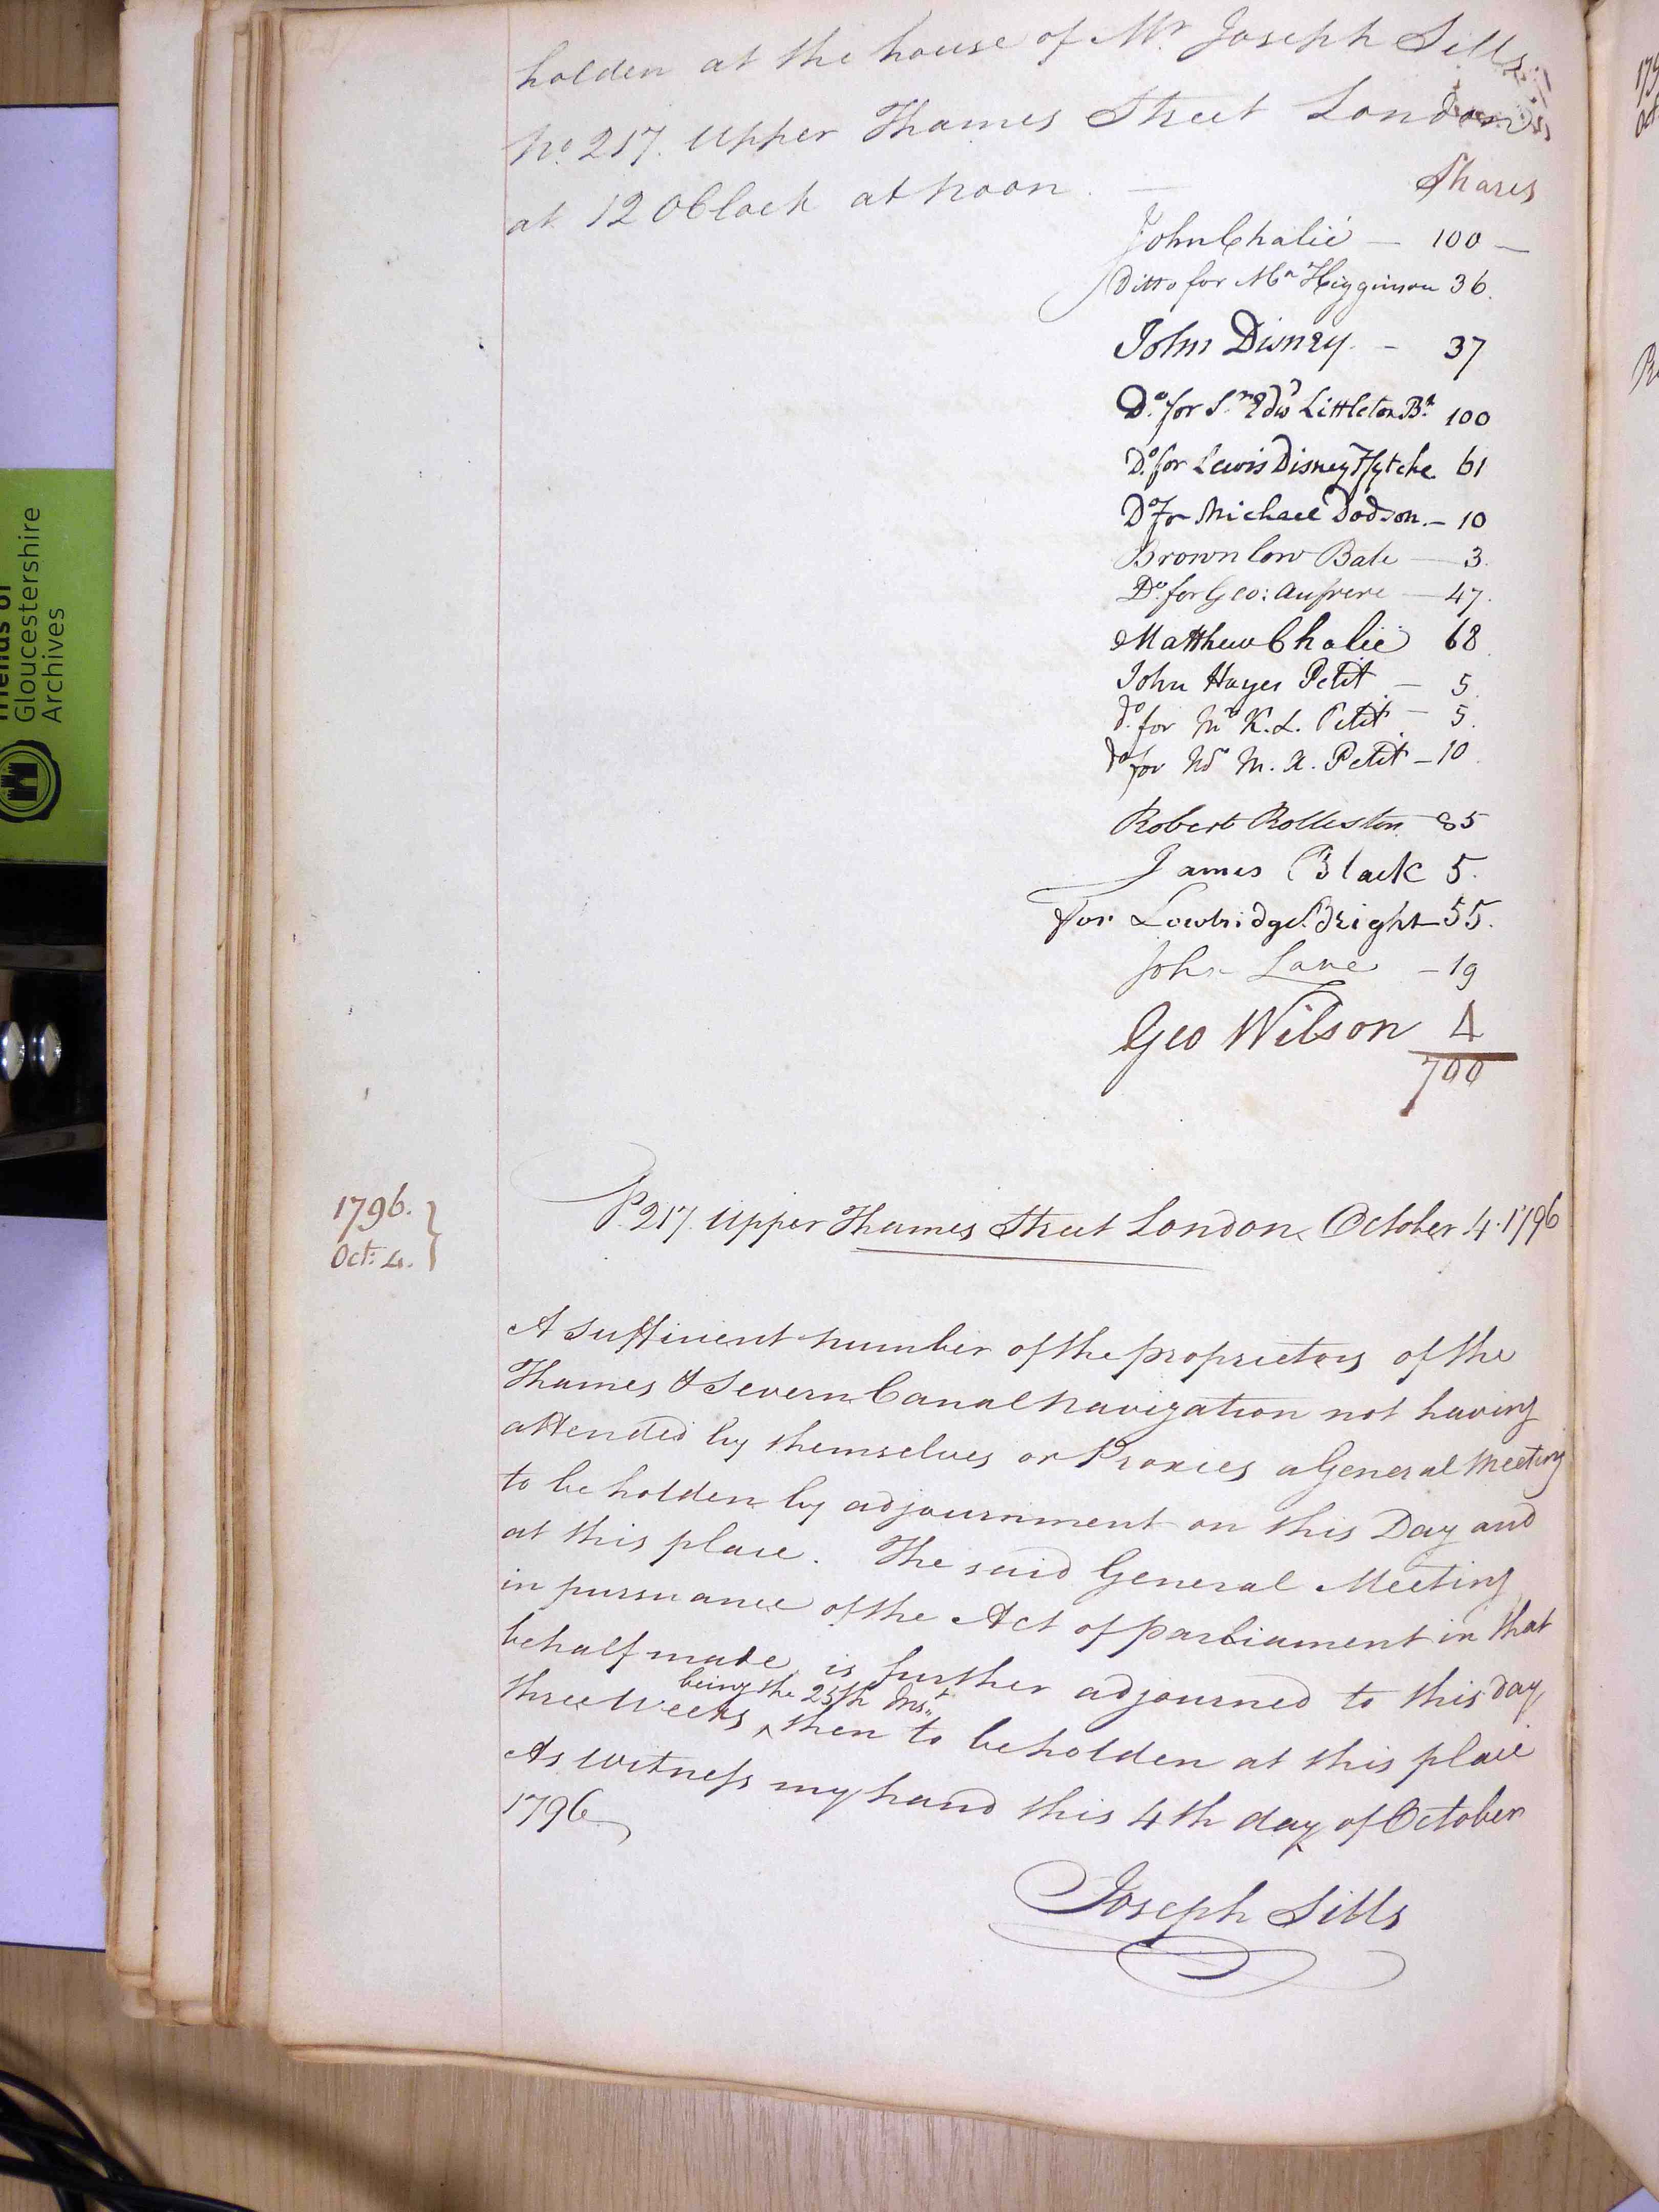 holden at the house of Mr. Joseph Sills
No. 217. Upper Thames Street London
at 12 OClock at noon. —
Shares
John Chalié — 100 —
Ditto for Mr Higginson 36.
John Disney. - 37
Do. for Sr. Edwd Littleton Bt. 100
Do. for Lewis Disney Ffytche 61
Do for Michael Dodson. - 10
Brownlow Bate — 3.
Do. for Geo: Aufrere — 47.
Matthew Chalié 68
John Hayes Petit — 5.
do. for Mr K. L. Petit — 5.
do for M. A. Petit - 10
Robert Rolleston 85
James Black 5.
for Lowbridge Bright - 55.
John Lane - 19
Geo Wilson 4
700
1796.
Oct: 4.
217. Upper Thames Street London October 4. 1796
A sufficient number of the proprietors of the
Thames & Severn Canal Navigation not having
attended by themselves or Proxies a General Meeting
to be holden by adjournment on this Day and
at this place. The said General Meeting
in pursuance of the Act of parliament in that
behalf made is further adjourned to this day
being the 25th Inst.
three Weeks ^ then to be holden at this place
As witness my hand this 4th day of October
1796
Joseph Sills
Friends of
Gloucestershire
Archives